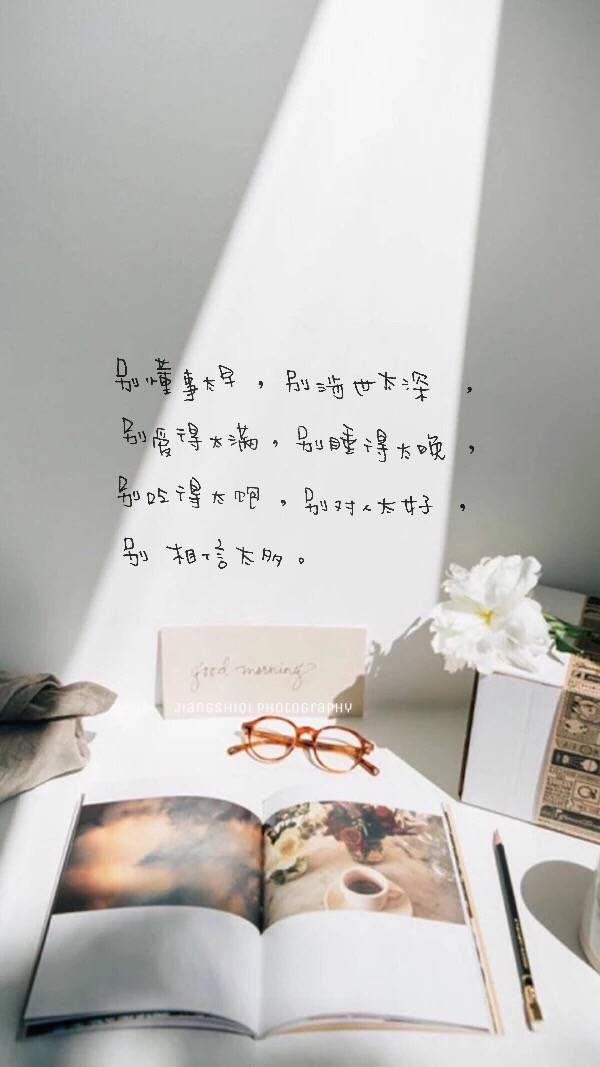 别懂事太早，别涉世太深，
别愛得太滿，别睡得太晚，
别吃得太飽，别对人太好，
别相信太多。
good morning
JIANGSHIQI PHOTOGRAPHY